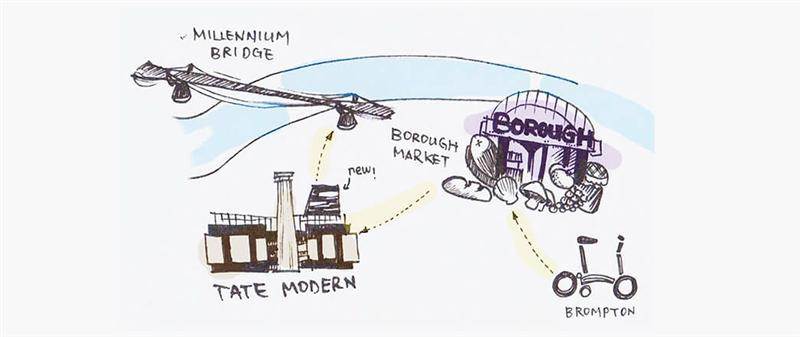 MILLENNIUM
BRIDGE
BOROUGH
BOROUGH
MARKET
new!
TATE MODERN
BROMPTON